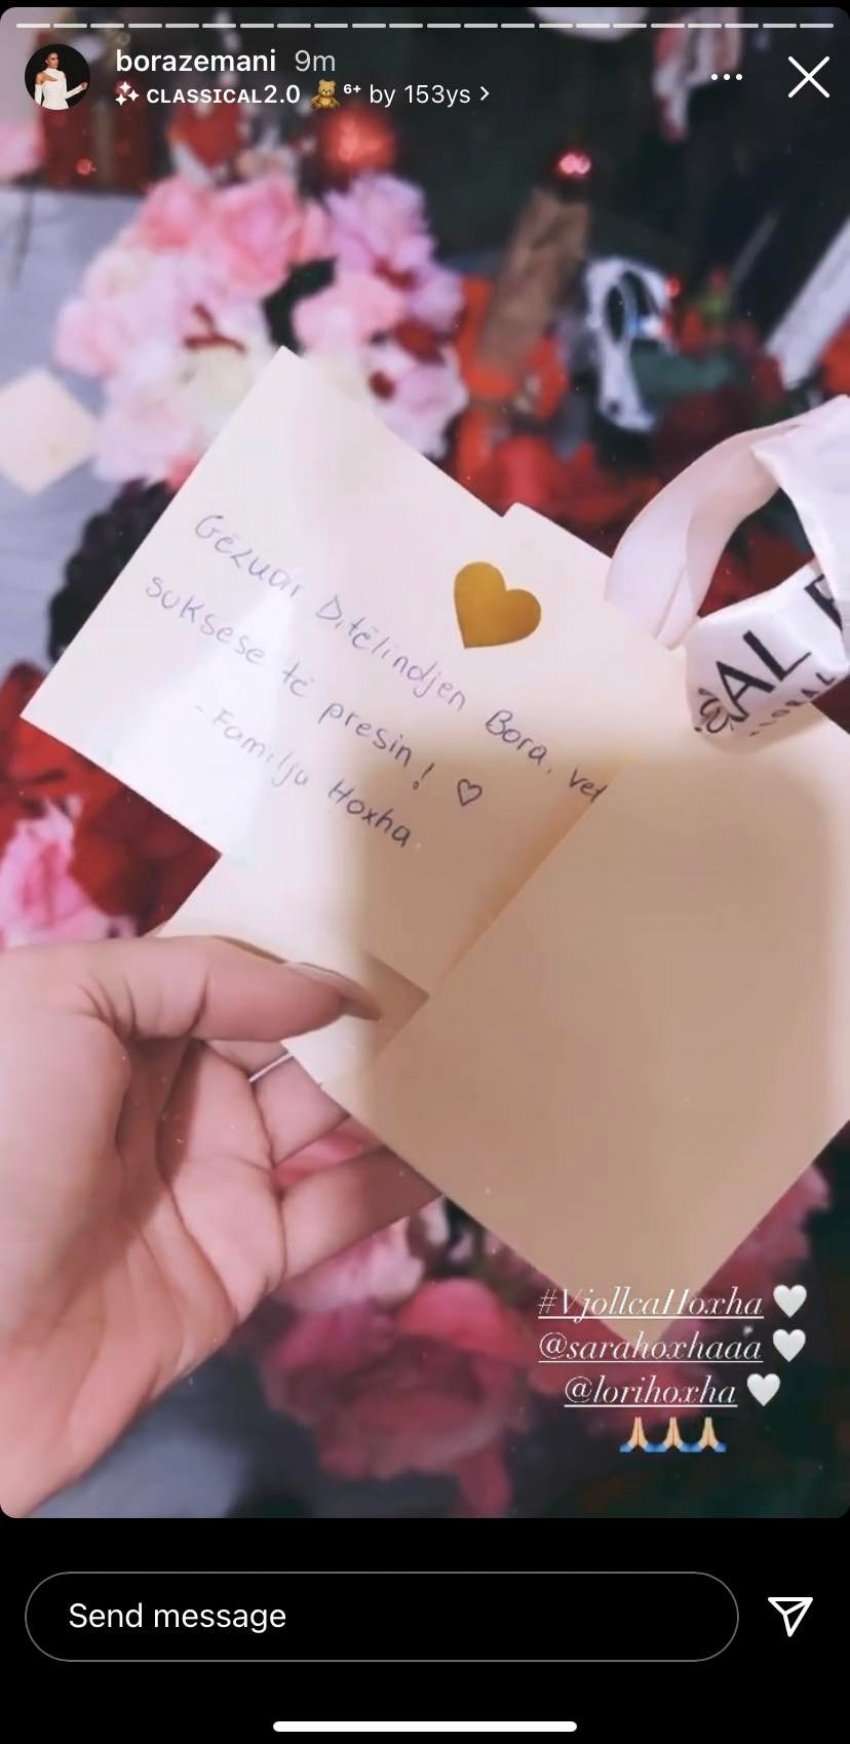 borazemani 9m
CLASSICAL2.0 6+ by 153ys >
Gëzuar Ditëlindjen Bora, vet
suksese të presin! ♡
-Familja Hoxha
AL
#VjollcaHoxha 🤍
@sarahoxhaaa 🤍
@lorihoxha 🤍
🙏🙏🙏
Send message